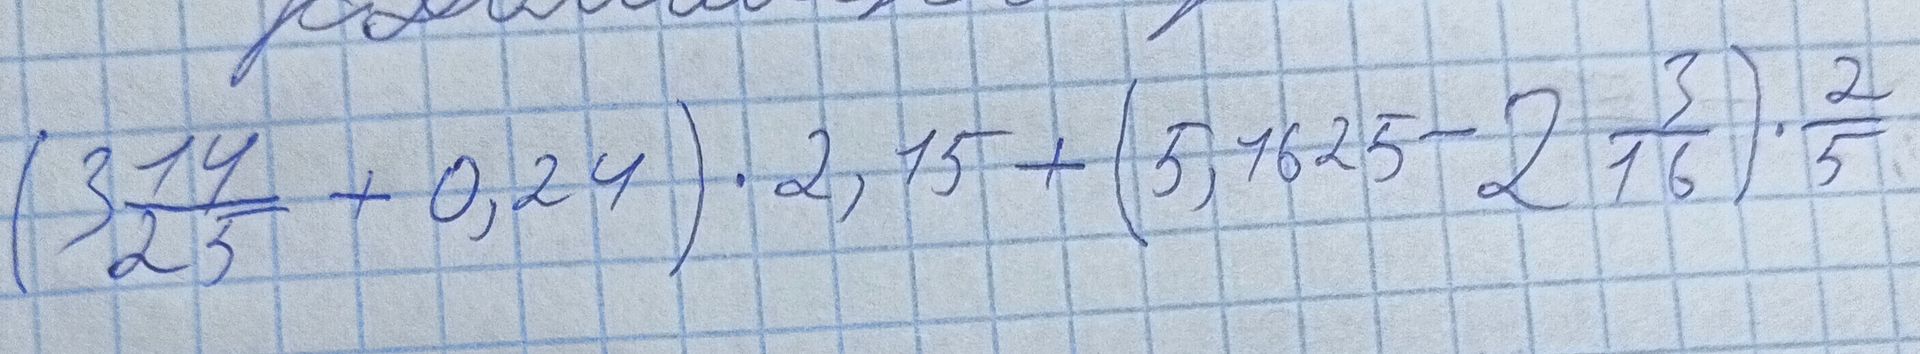 (3 14/25 + 0,24) · 2,15 + (5,1625 - 2 3/16) · 2/5